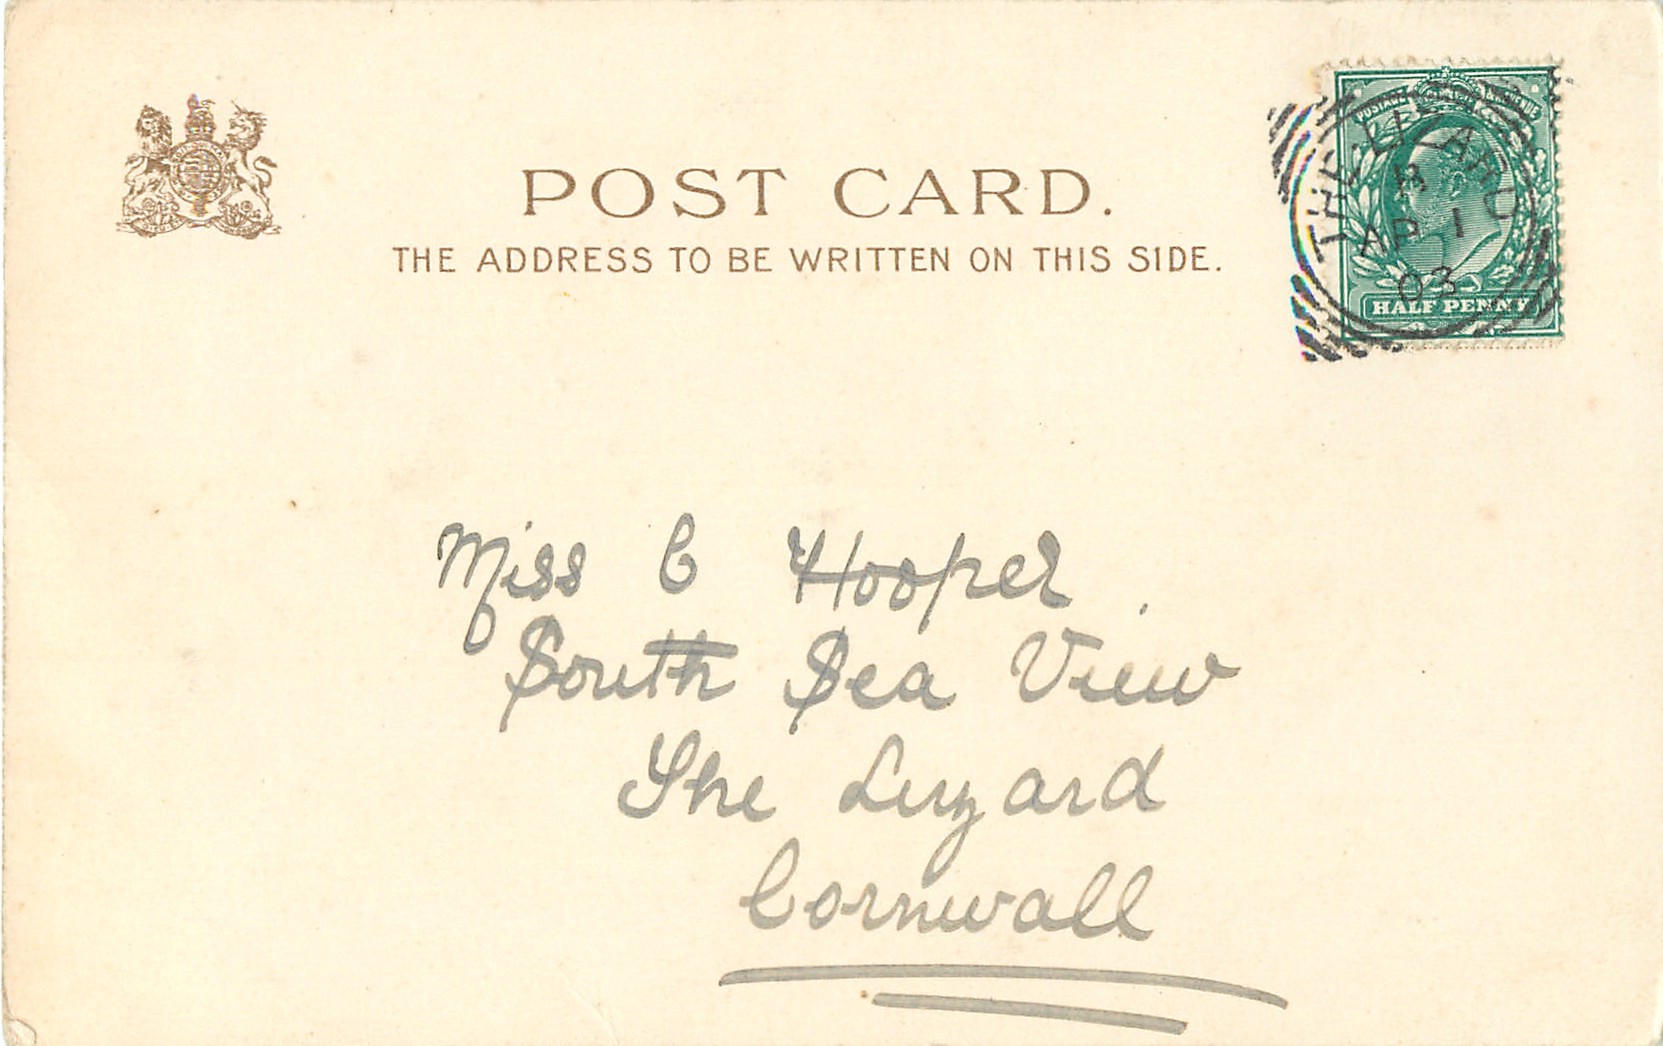 POST CARD.
THE ADDRESS TO BE WRITTEN ON THIS SIDE.
POSTAGE REVENUE
THE LIZARD
B
AP 1
03
HALF PENNY
Miss C Hooper.
South Sea View
The Lizard
Cornwall